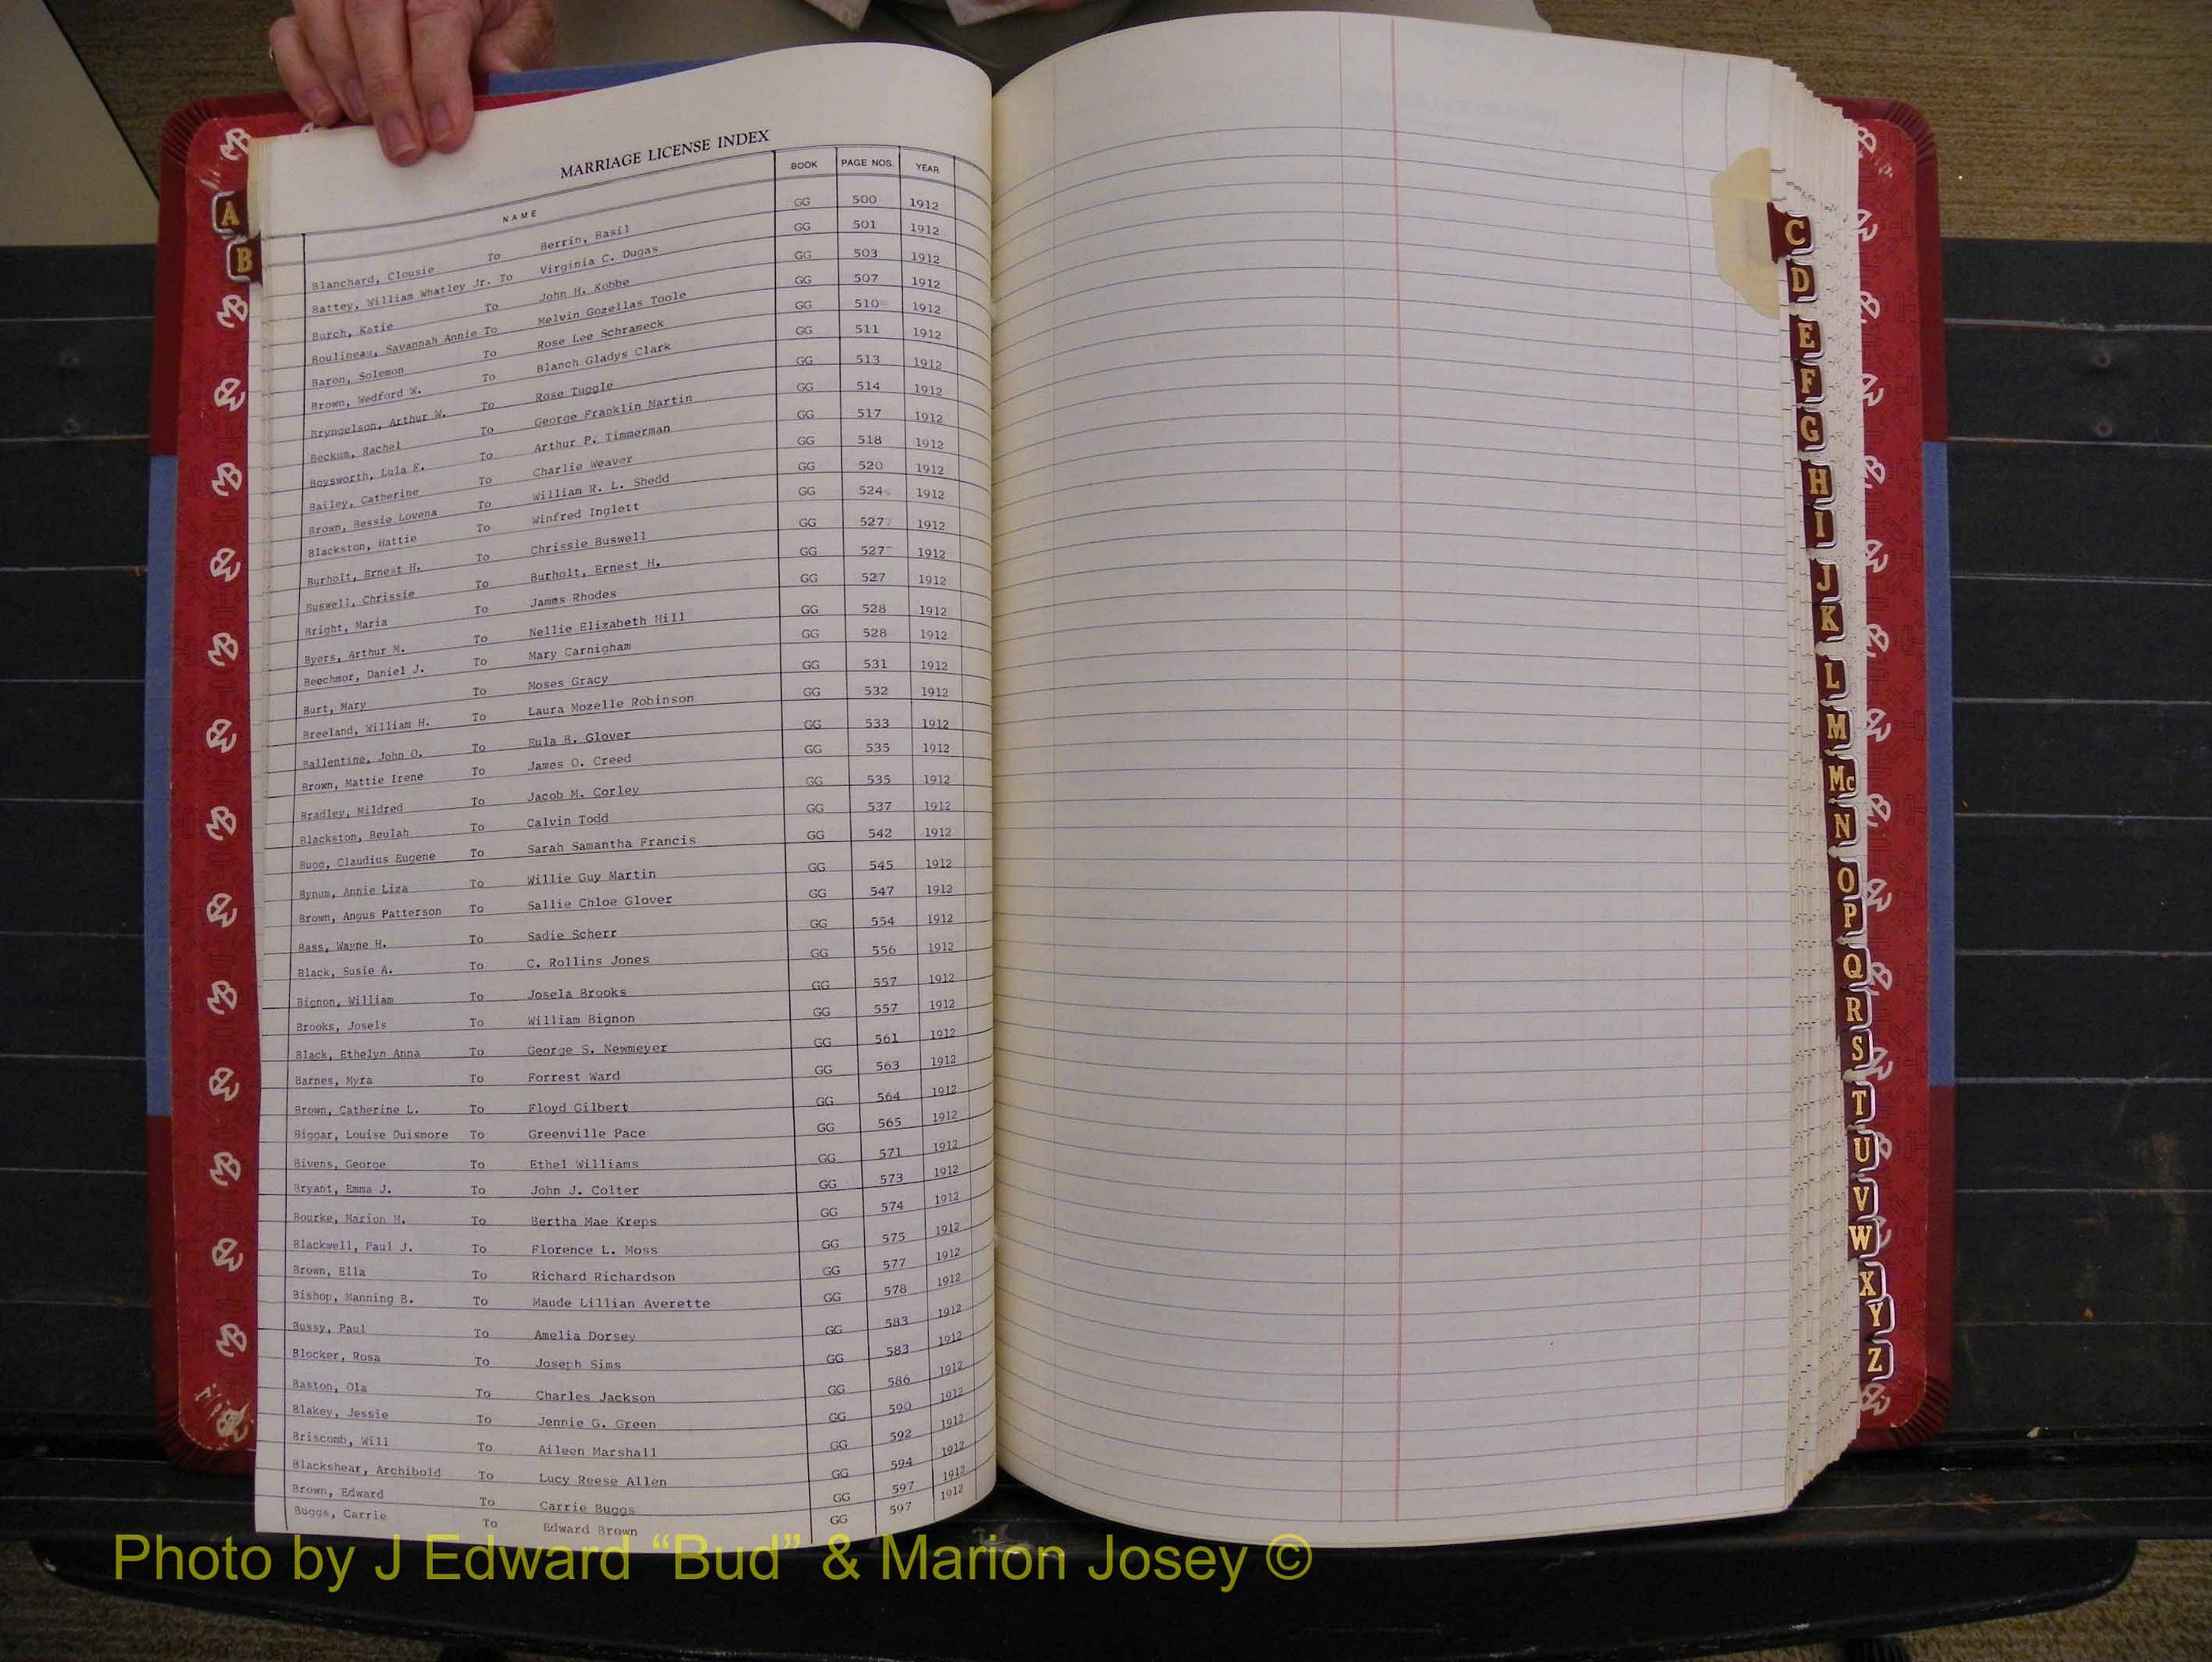 MARRIAGE LICENSE INDEX
NAME BOOK PAGE NOS. YEAR
Blanchard, Clousie To Berrin, Basil GG 500 1912
Battey, William Whatley Jr. To Virginia C. Dugas GG 501 1912
Burch, Katie To John H. Kobbe GG 503 1912
Boulineau, Savannah Annie To Melvin Gozellas Toole GG 507 1912
Baron, Solemon To Rose Lee Schrameck GG 510 1912
Brown, Wedford W. To Blanch Gladys Clark GG 511 1912
Bryngelson, Arthur W. To Rose Tuggle GG 513 1912
Beckum, Rachel To George Franklin Martin GG 514 1912
Boysworth, Lula F. To Arthur P. Timmerman GG 517 1912
Bailey, Catherine To Charlie Weaver GG 518 1912
Brown, Bessie Lovena To William R. L. Shedd GG 520 1912
Blackston, Hattie To Winfred Inglett GG 524 1912
Burholt, Ernest H. To Chrissie Buswell GG 527 1912
Buswell, Chrissie To Burholt, Ernest H. GG 527 1912
Bright, Maria To James Rhodes GG 527 1912
Byers, Arthur M. To Nellie Elizabeth Hill GG 528 1912
Beechmor, Daniel J. To Mary Carnigham GG 528 1912
Burt, Mary To Moses Gracy GG 531 1912
Breeland, William H. To Laura Mozelle Robinson GG 532 1912
Ballentine, John O. To Eula B. Glover GG 533 1912
Brown, Mattie Irene To James O. Creed GG 535 1912
Bradley, Mildred To Jacob M. Corley GG 535 1912
Blackston, Beulah To Calvin Todd GG 537 1912
Bugg, Claudius Eugene To Sarah Samantha Francis GG 542 1912
Bynum, Annie Liza To Willie Guy Martin GG 545 1912
Brown, Angus Patterson To Sallie Chloe Glover GG 547 1912
Bass, Wayne H. To Sadie Scherr GG 554 1912
Black, Susie A. To C. Rollins Jones GG 556 1912
Bignon, William To Josela Brooks GG 557 1912
Brooks, Josels To William Bignon GG 557 1912
Black, Ethelyn Anna To George S. Newmeyer GG 561 1912
Barnes, Myra To Forrest Ward GG 563 1912
Brown, Catherine L. To Floyd Gilbert GG 564 1912
Biggar, Louise Duismore To Greenville Pace GG 565 1912
Bivens, George To Ethel Williams GG 571 1912
Bryant, Emma J. To John J. Colter GG 573 1912
Bourke, Marion H. To Bertha Mae Kreps GG 574 1912
Blackwell, Paul J. To Florence L. Moss GG 575 1912
Brown, Ella To Richard Richardson GG 577 1912
Bishop, Manning B. To Maude Lillian Averette GG 578 1912
Bussy, Paul To Amelia Dorsey GG 583 1912
Blocker, Rosa To Joseph Sims GG 583 1912
Baston, Ola To Charles Jackson GG 586 1912
Blakey, Jessie To Jennie G. Green GG 590 1912
Briscomb, Will To Aileen Marshall GG 592 1912
Blackshear, Archibold To Lucy Reese Allen GG 594 1912
Brown, Edward To Carrie Buggs GG 597 1912
Buggs, Carrie To Edward Brown GG 597 1912
A
B
C
D
E
F
G
H
I
J
K
L
M
Mc
N
O
P
Q
R
S
T
U
V
W
X
Y
Z
Photo by J Edward “Bud” & Marion Josey ©